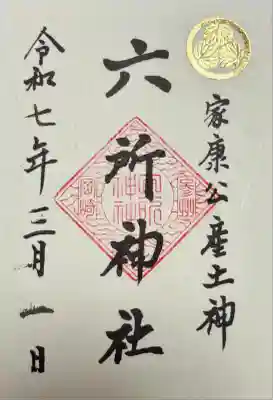 家康公産土神
六所神社
令和七年三月一日
参州
六所
神社
岡崎